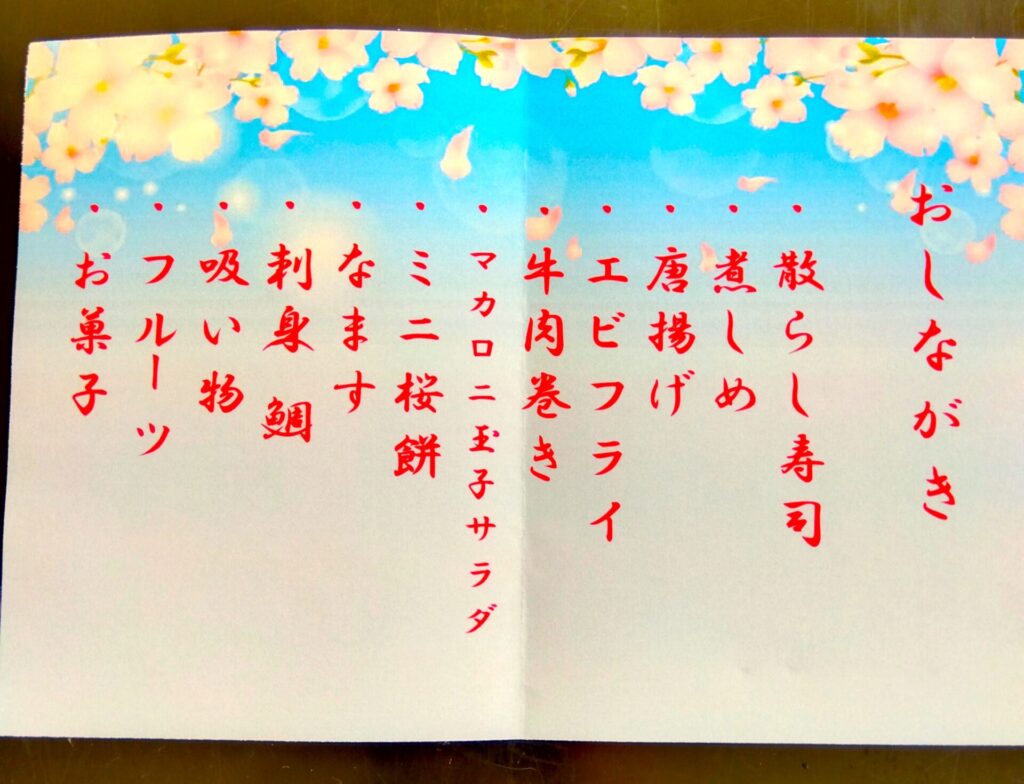 おしながき
・散らし寿司
・煮しめ
・唐揚げ
・エビフライ
・牛肉巻き
・マカロニ玉子サラダ
・ミニ桜餅
・なます
・刺身 鯛
・吸い物
・フルーツ
・お菓子